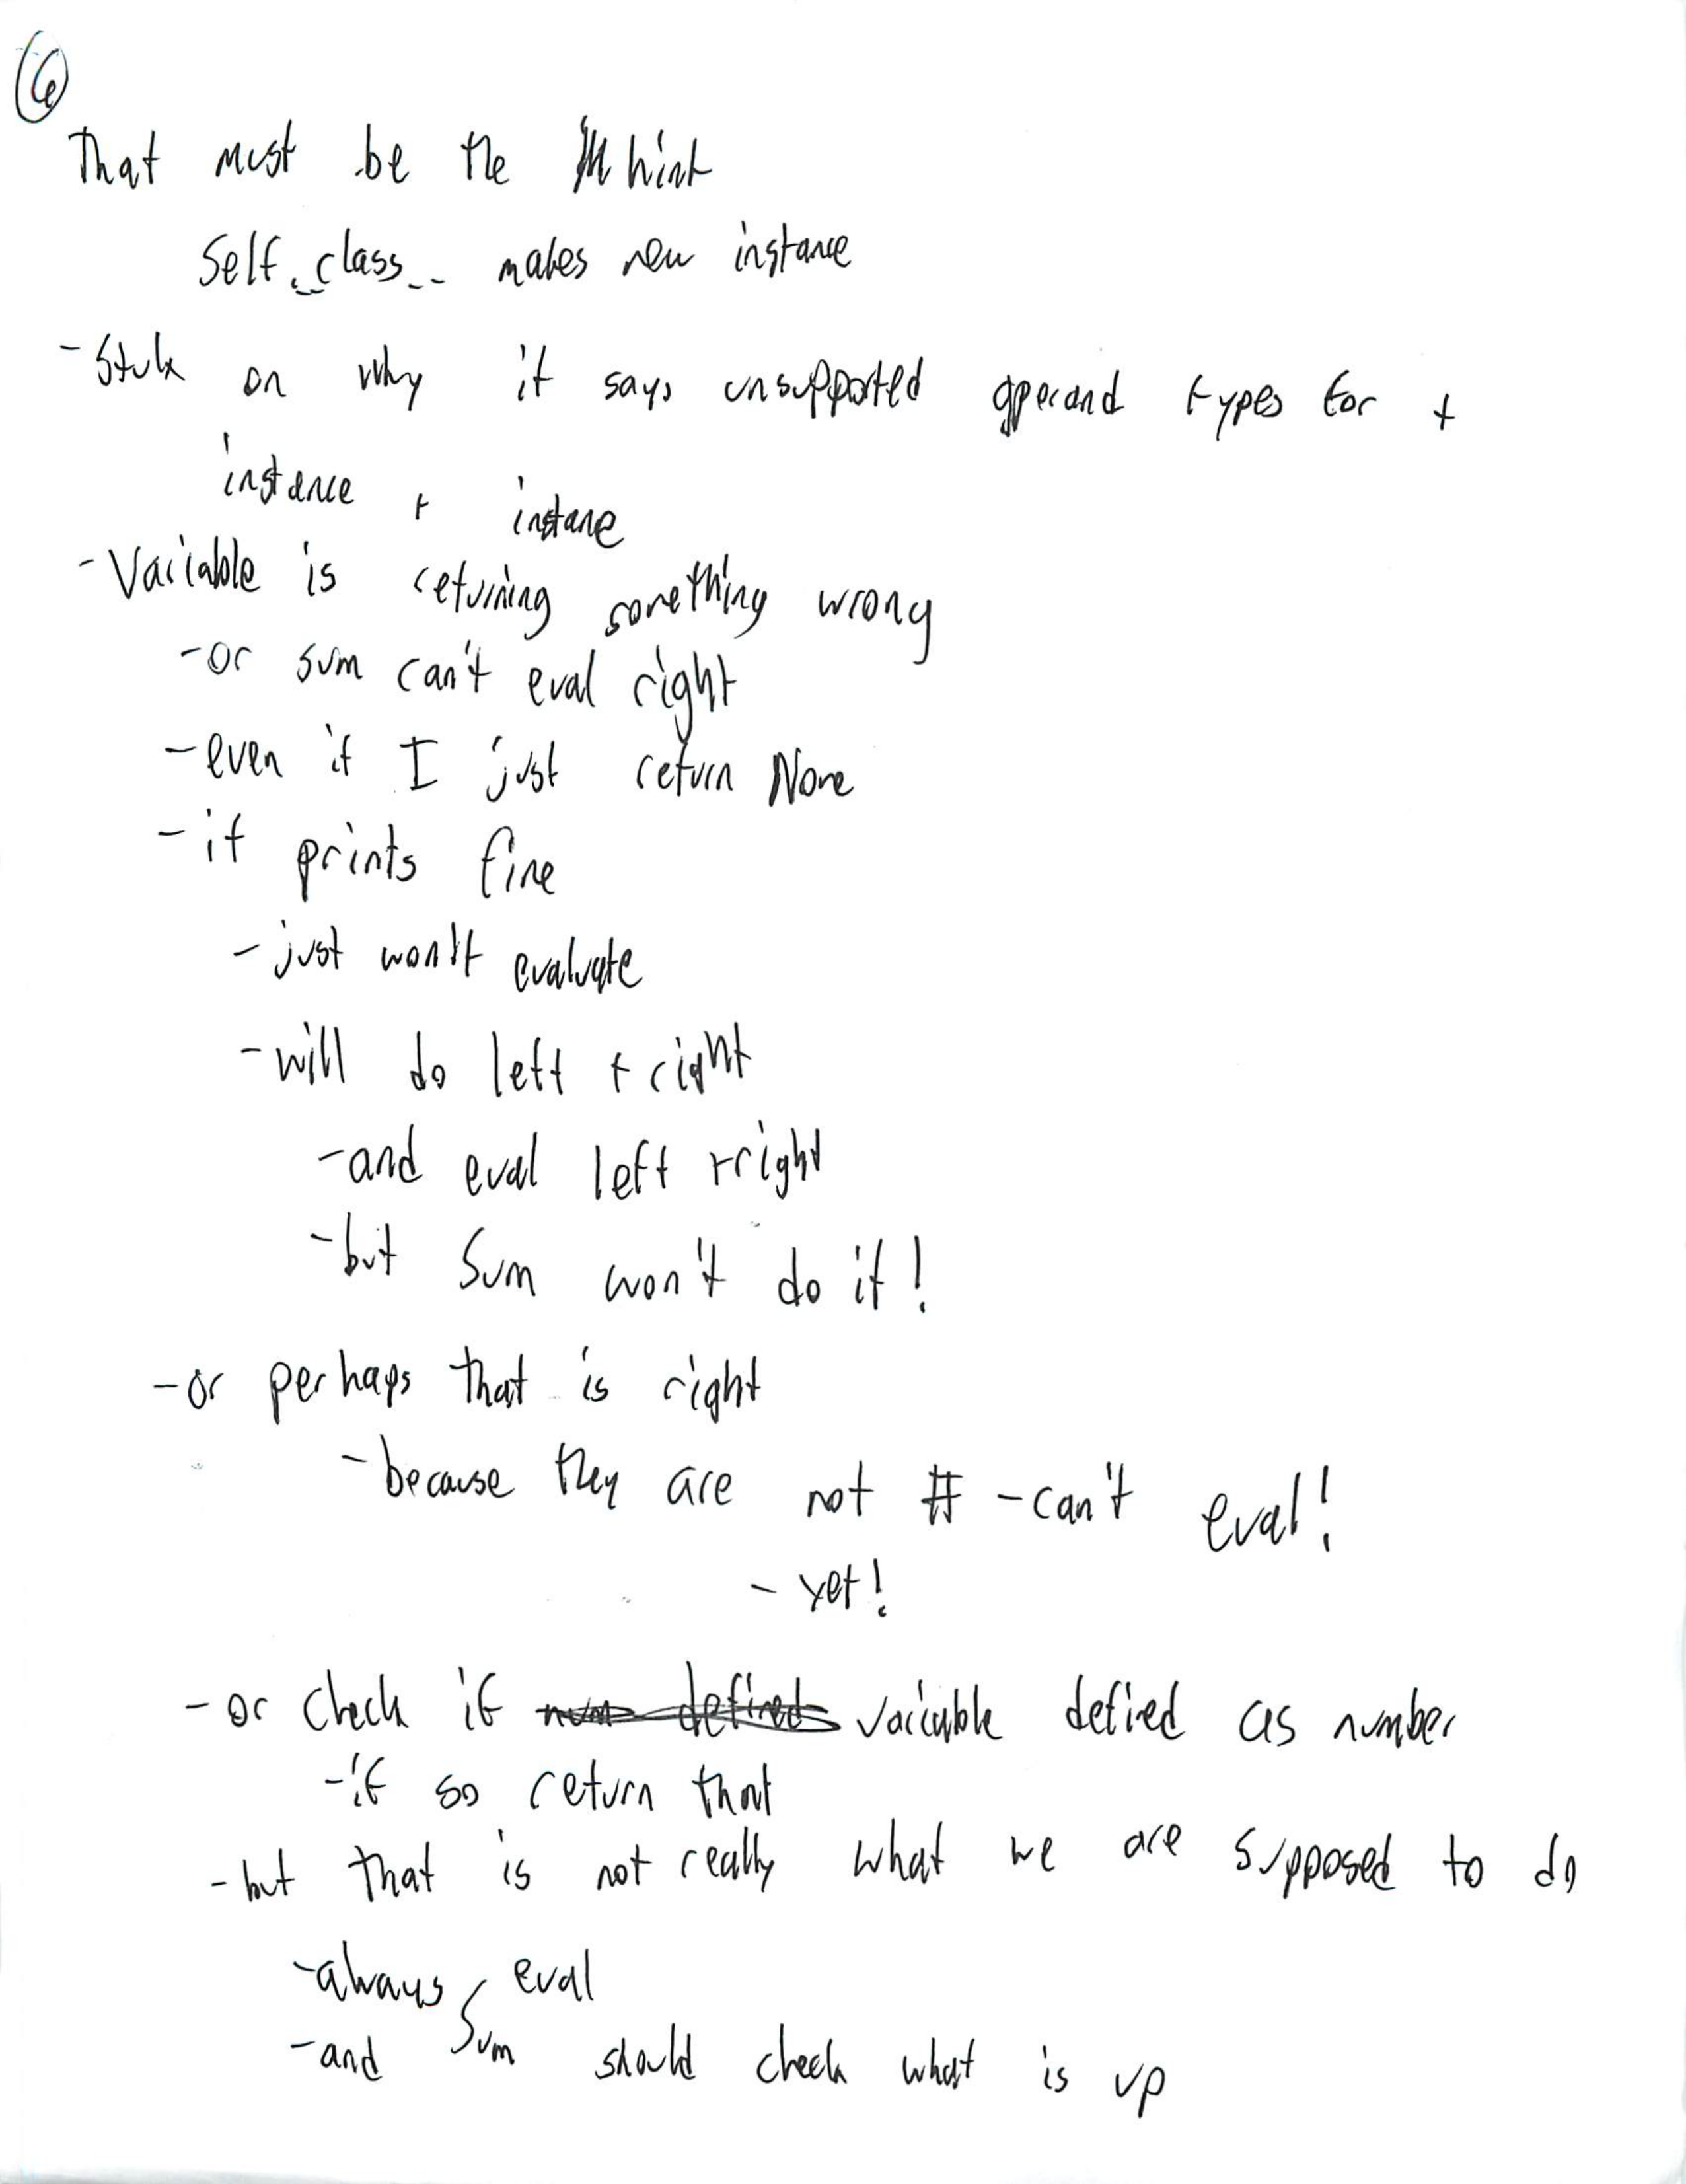 6
That must be the hint
Self.__class__ makes new instance
- Stuk on why it says unsupported operand types for +
instance + instane
- Variable is returning something wrong
- or sum can't eval right
- even if I just return None
- it prints fine
- just won't evaluate
- will do left + right
- and eval left + right
- but Sum won't do it!
- or perhaps that is right
- because they are not # - can't eval!
- yet!
- or check if num defined variable defied as number
- if so return that
- but that is not really what we are supposed to do
- always eval
- and Sum should check what is up